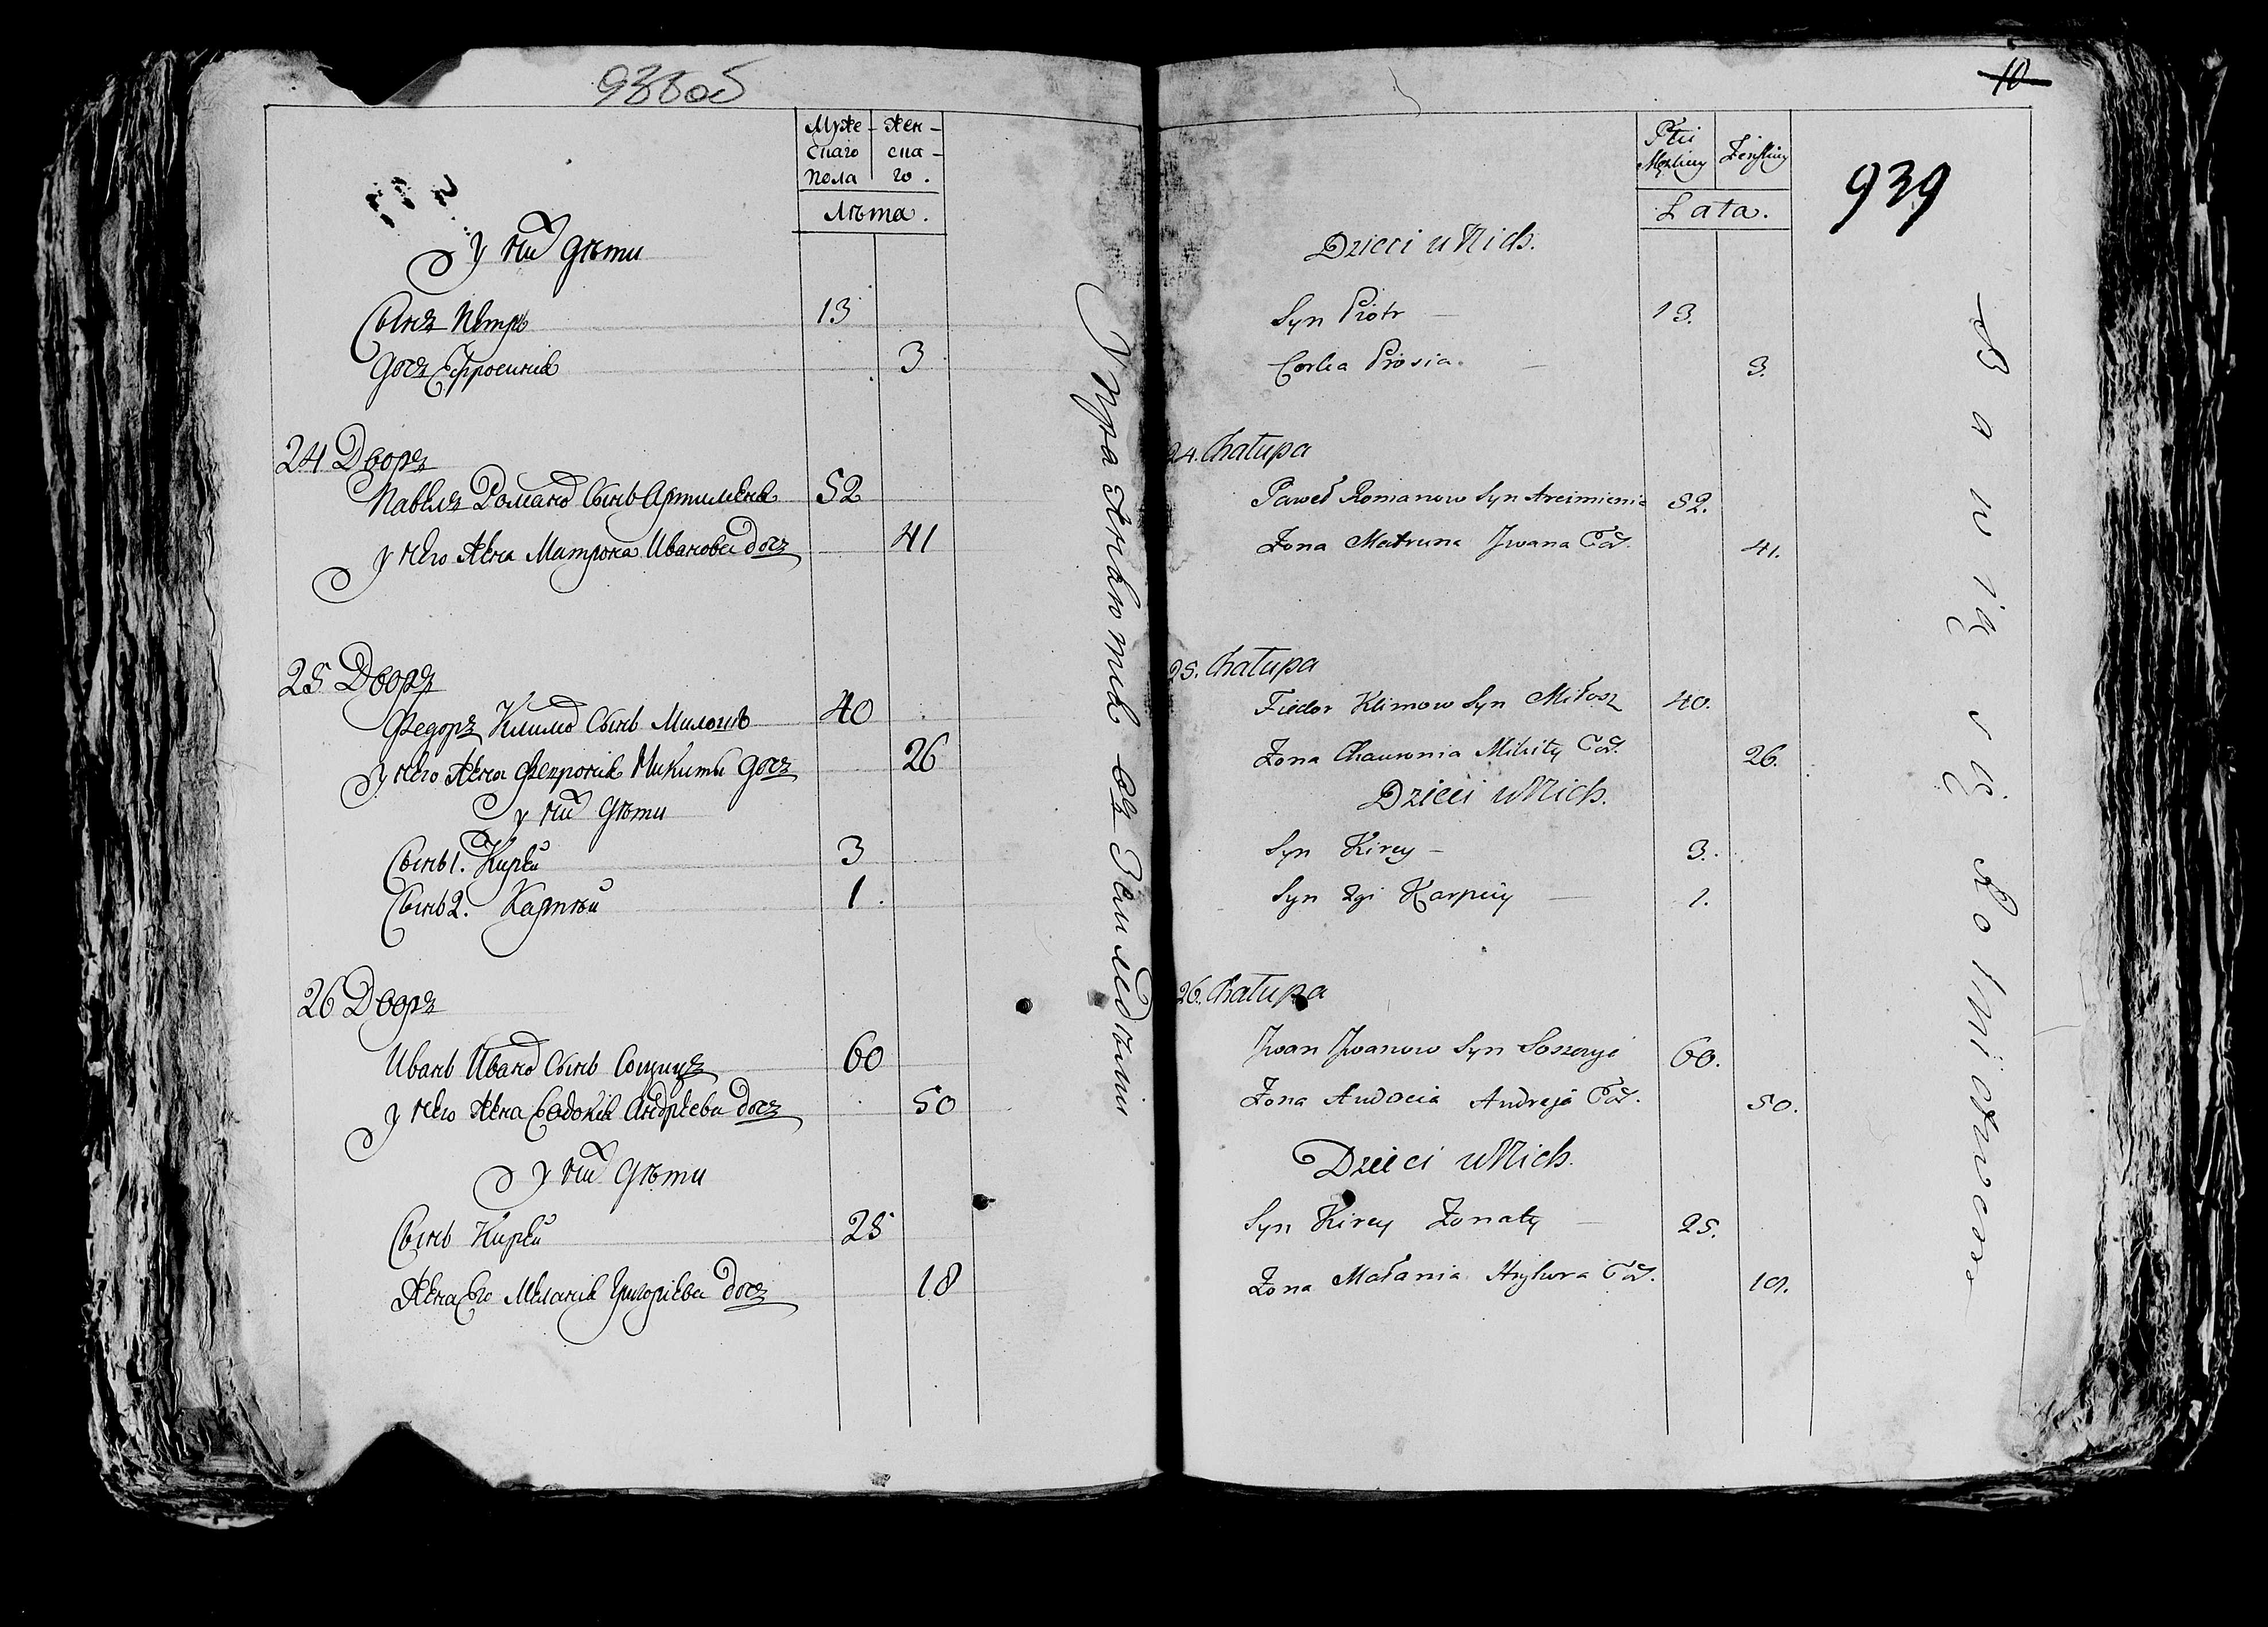 938об
Муже- Жен-
скаго ска-
пола го.
Лѣта.
У них дѣти
Сынъ Петръ 13
дочь Ефросинія 3
24 Дворъ
Павелъ Романов Сынъ Артимѣня 52
у него жена Матрона Иванова дочь 41
25 Дворъ
Федоръ Климов Сынъ Милошъ 40
у него жена Февронія Никиты дочь 26
у них дѣти
Сынъ 1. Кирѣй 3
Сынъ 2. Карпѣй 1.
26 Дворъ
Иванъ Иванов Сынъ 60
у него жена Евдокія Андрѣева дочь 50
у них дѣти
Сынъ Кирѣй 25
Жена Его Меланія Григорiева дочь 18
10
939
Płci
Męzkiey Zeńskiey
Lata.
Dzieci u Nich.
Syn Piotr — 13.
Corka Prosia. — 3.
24. Chałupa
Paweł Romanow Syn Arcimienia 52.
Zona Matruna Jwana Cór. 41.
25. Chałupa
Fiedor Klimow Syn Miłosz 40.
Zona Chauronia Mikity Cór. 26.
Dzieci u Nich.
Syn Kirey — 3.
Syn 2gi Karpiey — 1.
26. Chałupa
Jwan Jwanow Syn 60.
Zona Audocia Andreja Cór. 50.
Dzieci u Nich.
Syn Kirey Zonaty — 25.
Zona Małania Hryhora Cór. 18.